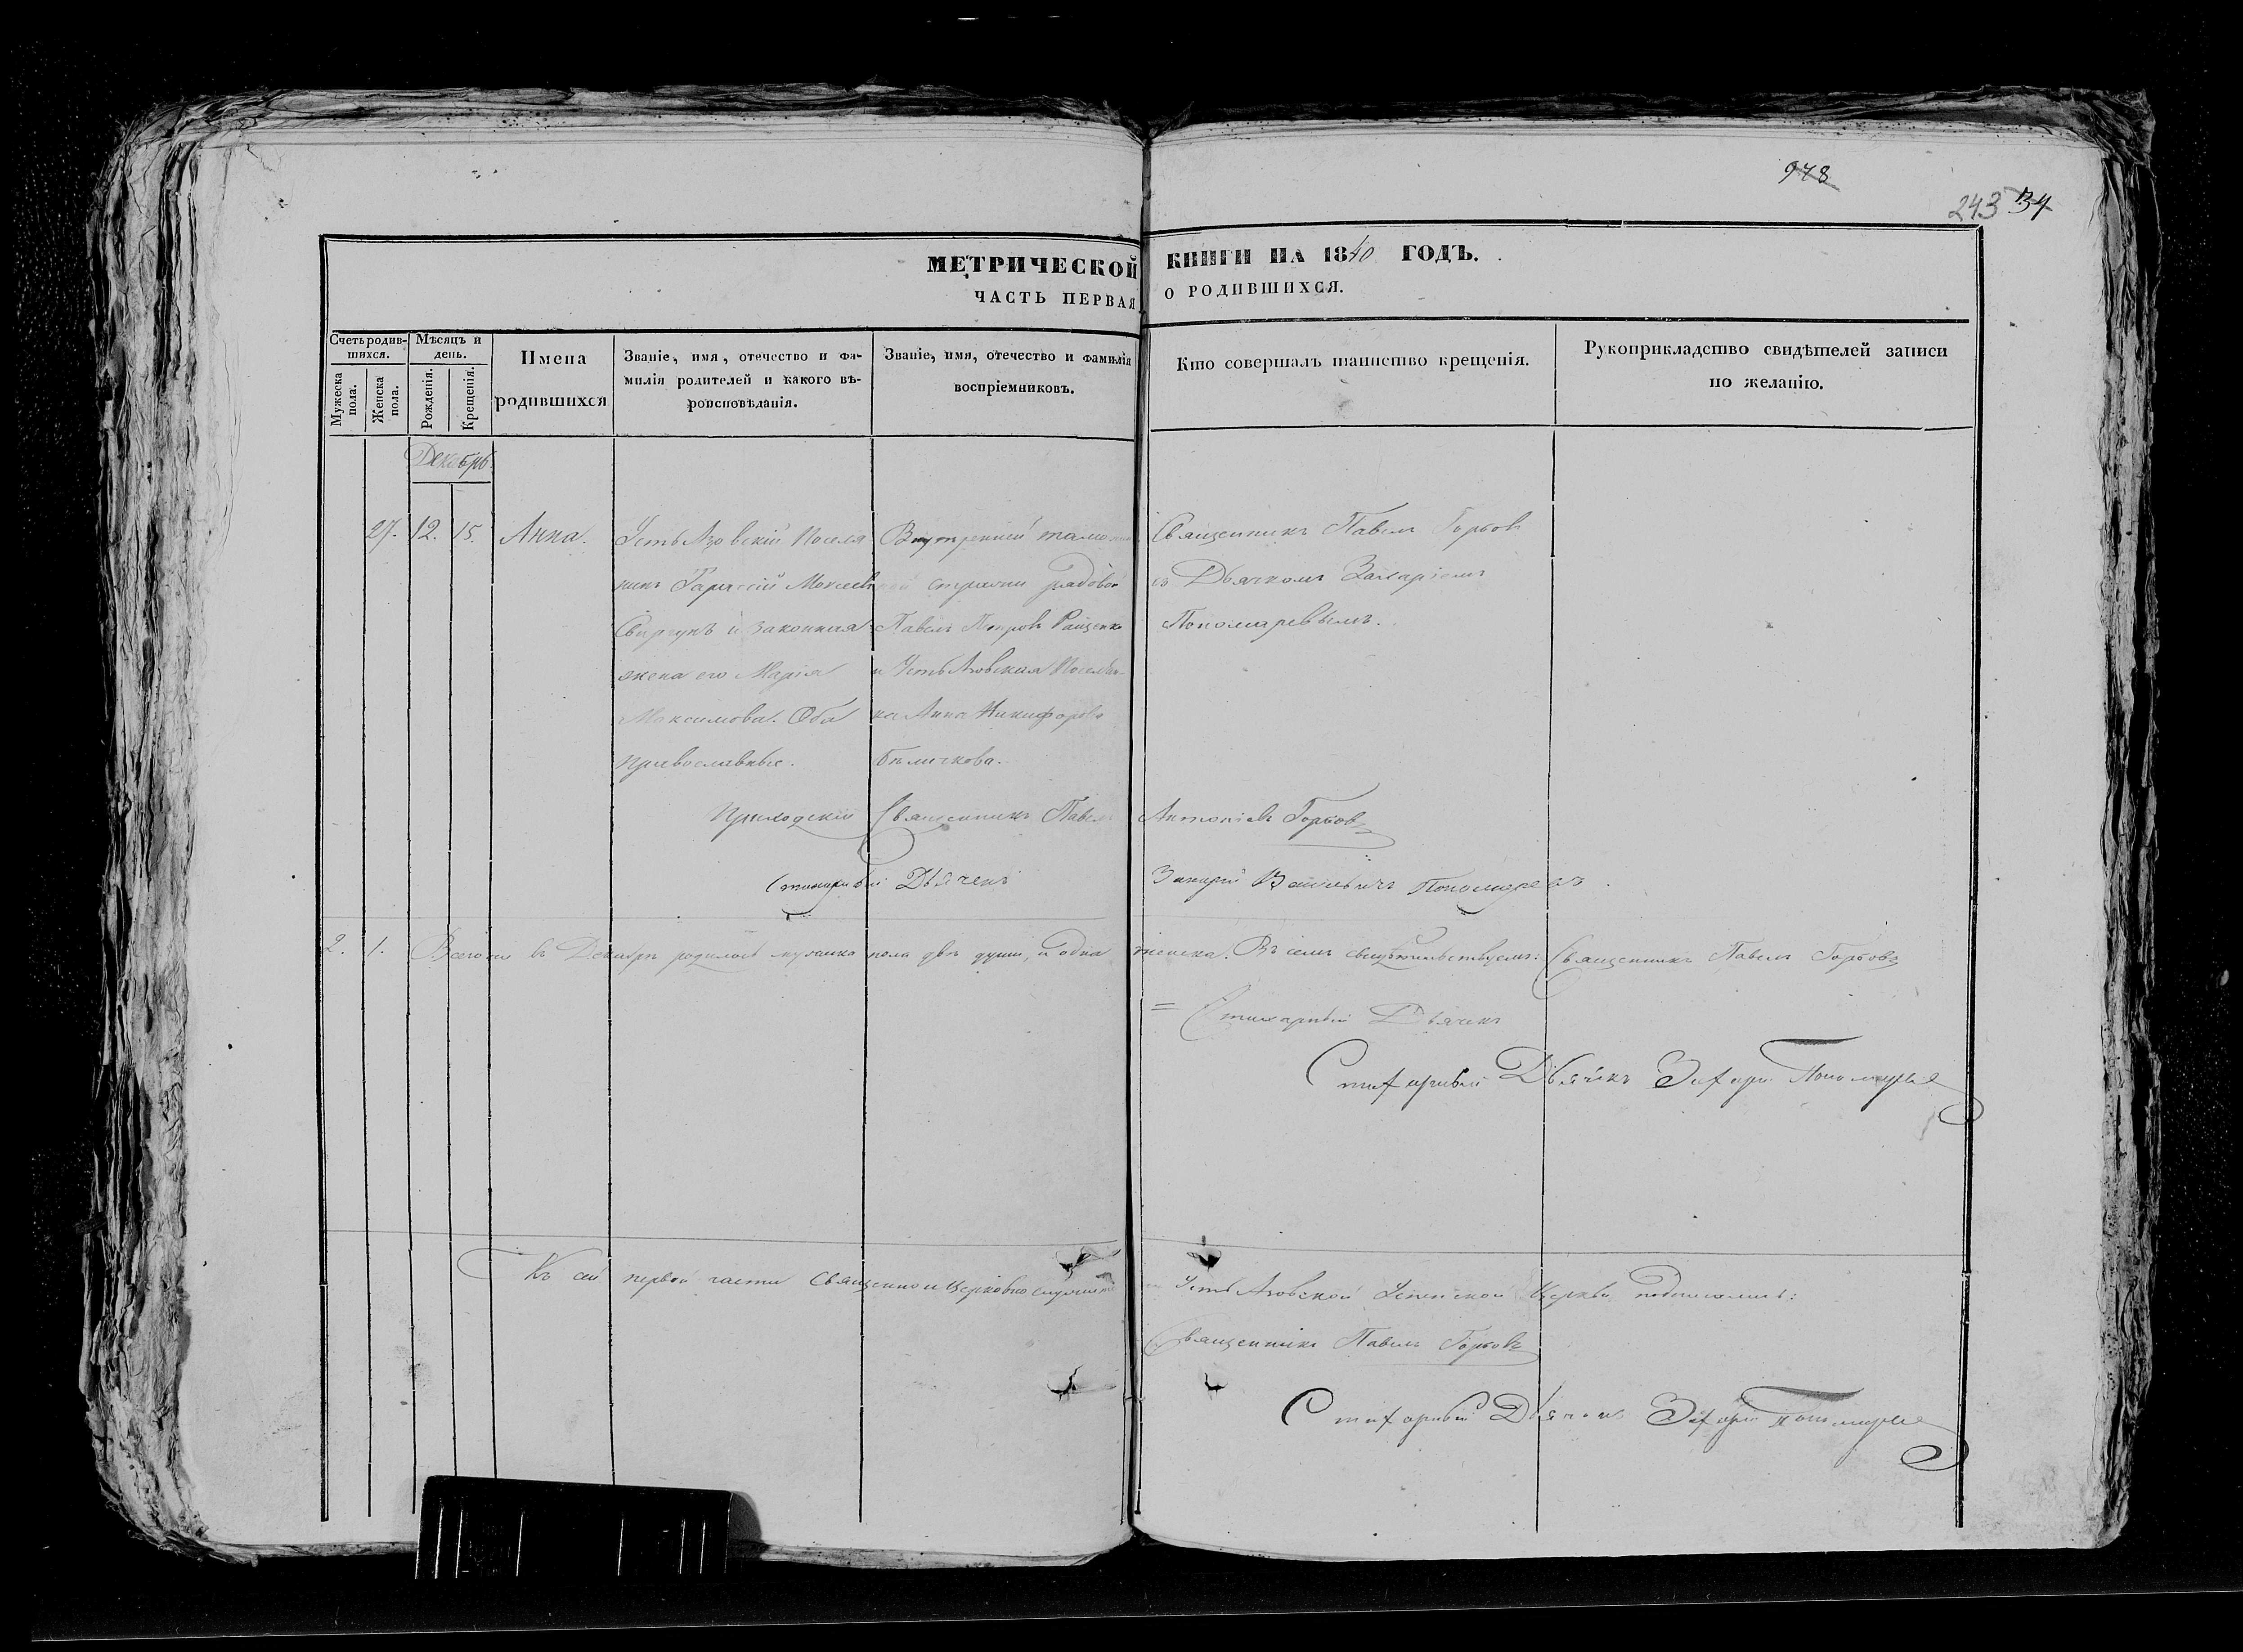 978
243 34
МЕТРИЧЕСКОЙ КНИГИ НА 1840 ГОДЪ.
ЧАСТЬ ПЕРВАЯ О РОДИВШИХСЯ.
Счетъ родив-
шихся.
Мужеска пола.
Женска пола.
Мѣсяцъ и
день.
Рожденія.
Крещенія.
Имена
родившихся
Званіе, имя, отечество и фа-
милія родителей и какого вѣ-
роисповѣданія.
Званіе, имя, отечество и фамилія
воспріемниковъ.
Кто совершалъ таинство крещенія.
Рукоприкладство свидѣтелей записи
по желанію.
Декабрь
27. 12. 15. Анна.
Усть Азовскій Поселя
нинъ Моисеевъ
и законная
жена его Марія
Максимова. Оба
православные.
Внутренней
стражи рядовой
Павелъ Петровъ
и Усть Азовская Поселян-
ка Анна Никифорова
Священникъ Павелъ Горбовъ
съ Дьячкомъ Захаріемъ
Пономаревымъ.
Приходскій Священникъ Павелъ Антоніевъ Горбовъ
Стихарный Дьячекъ Захарій Васильевъ Пономаревъ
2. 1. Всего въ Декабрѣ родилось мужеска пола двѣ души, и одна женска. Въ семъ свидѣтельствуемъ: Священникъ Павелъ Горбовъ
= Стихарный Дьячекъ
Стихарный Дьячекъ Захарій Пономаревъ
Къ сей первой части Священно и Церковно служители Усть Азовской Успенской Церкви подписались:
Священникъ Павелъ Горбовъ
Стихарный Дьячекъ Захарій Пономаревъ